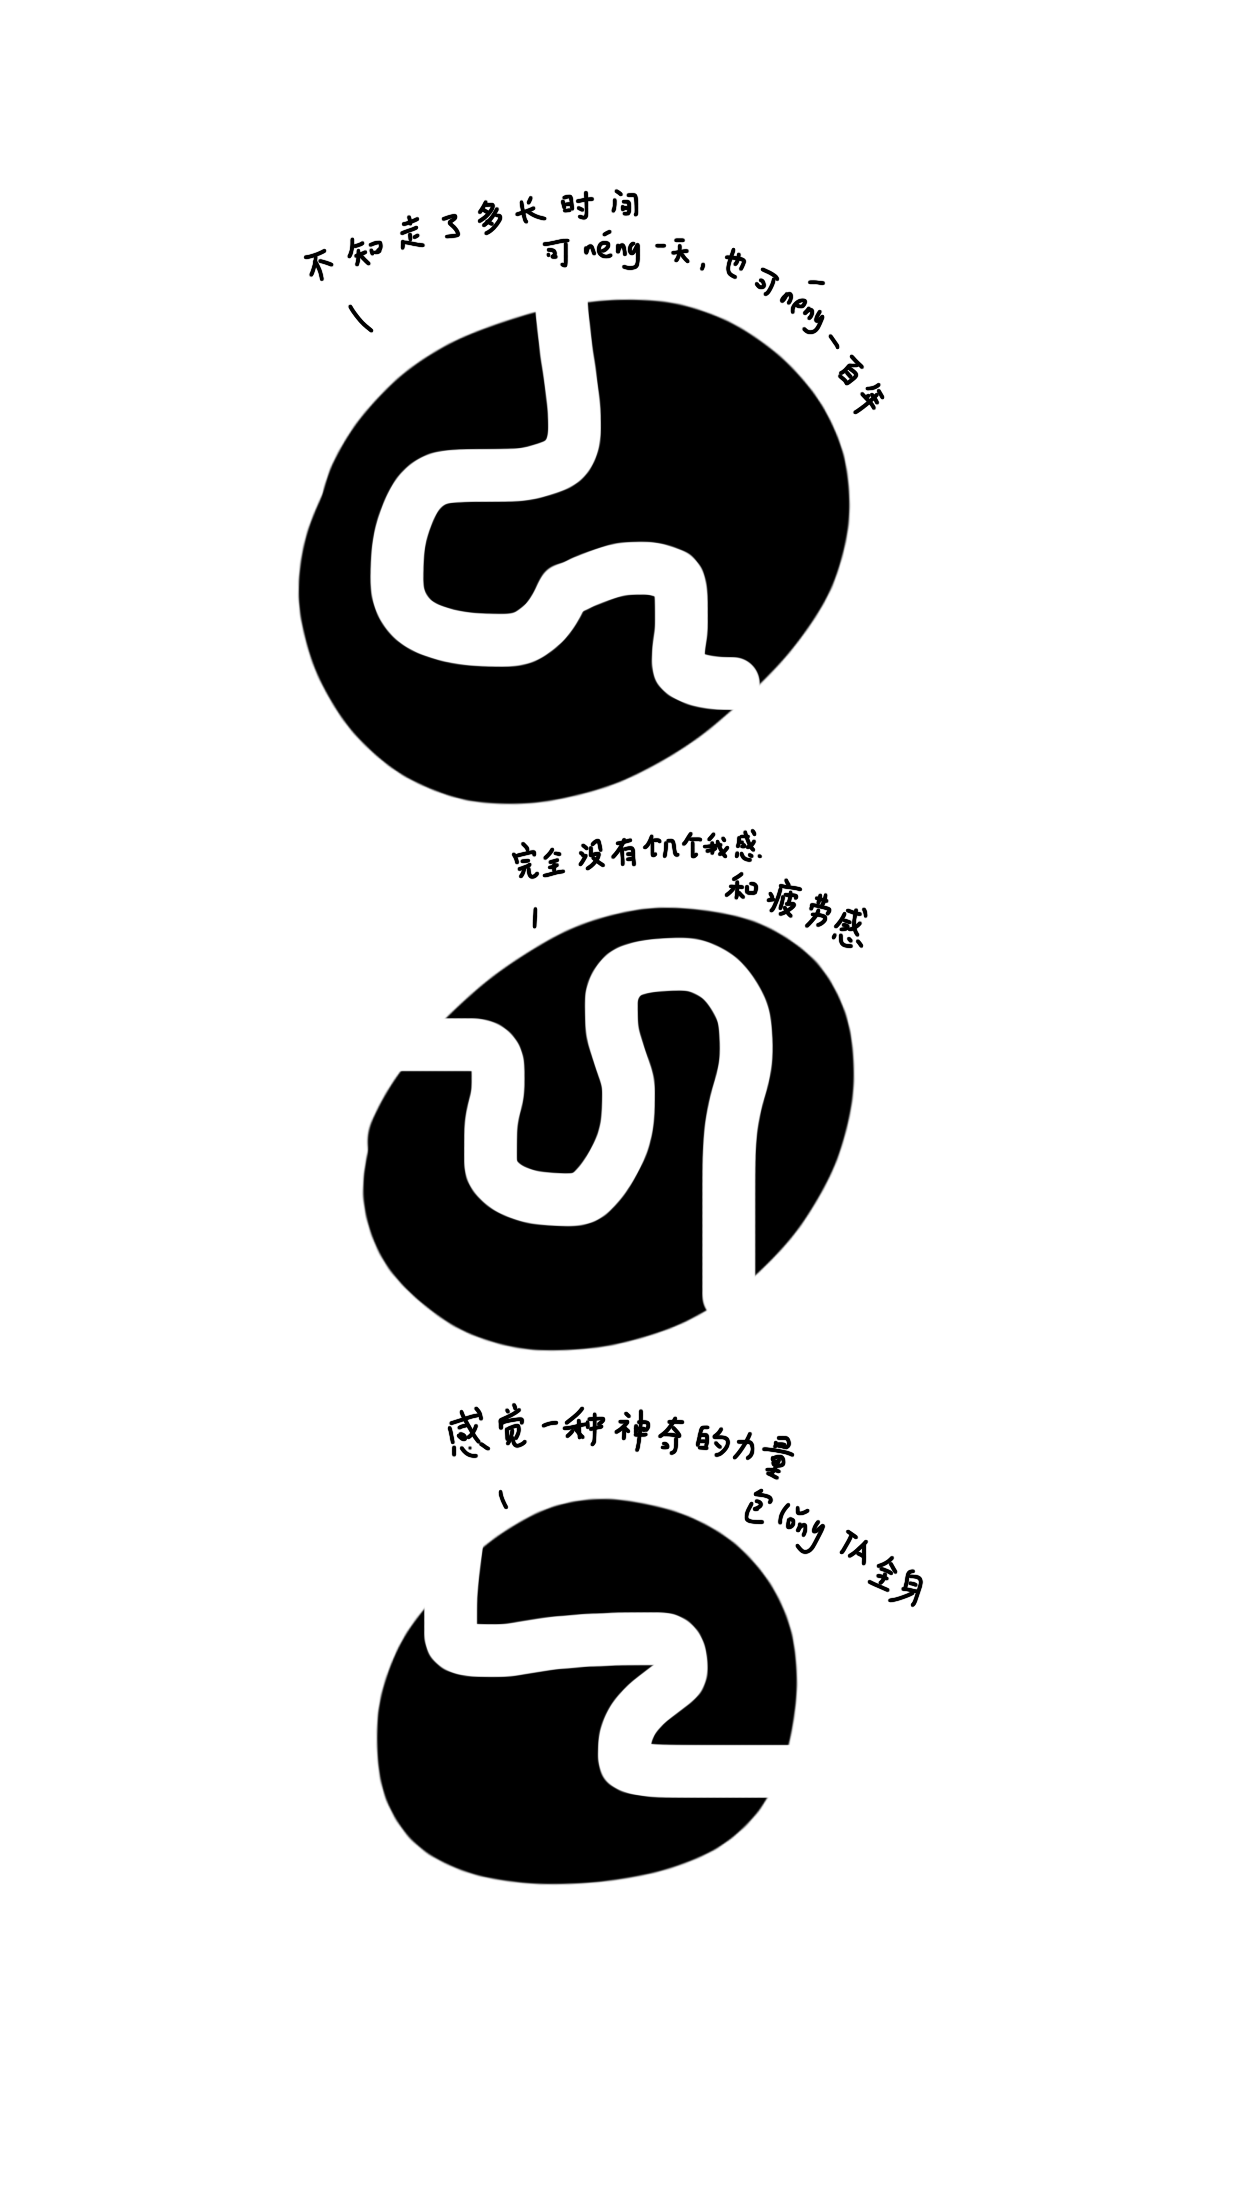 不知走了多长时间
可néng一天，也可néng一百年
完全没有饥饿感
和疲劳感
感觉一种神奇的力量
包lǒng TA全身